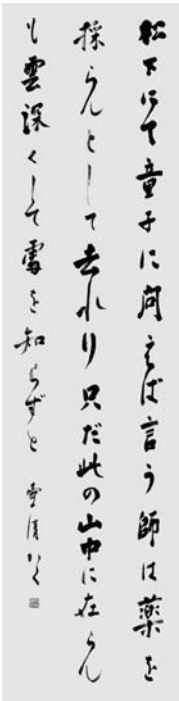 松下にて童子に問えば言う師は薬を
採らんとして去れり只だ此の山中に在らん
も雲深くして處を知らずと